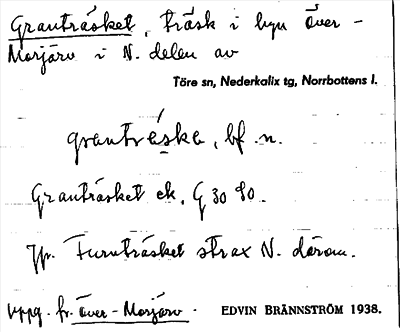 Granträsket, träsk i byn Över-
Morjärv i N. delen av
Töre sn, Nederkalix tg, Norrbottens l.
grantréske, bf. n.
Granträsket ek. G 30 80.
Jfr. Furuträsket strax N. därom.
uppg. fr. Över-Morjärv. EDVIN BRÄNNSTRÖM 1938.